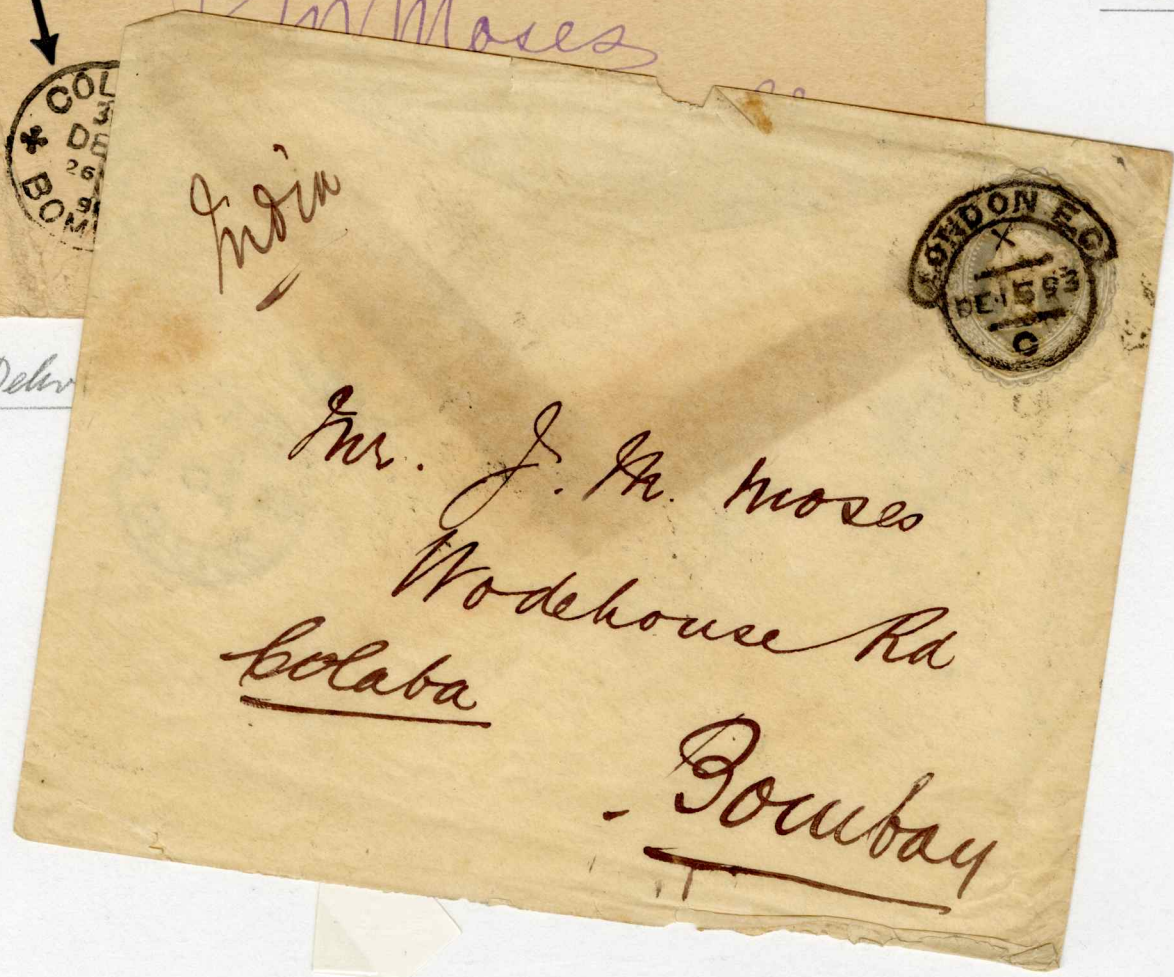 Moses
COL
3
DE
26
9
BOM
Delv
India
LONDON E.C
X
DE 15 93
C
Mr. J. M. Moses
Wodehouse Rd
Colaba
Bombay